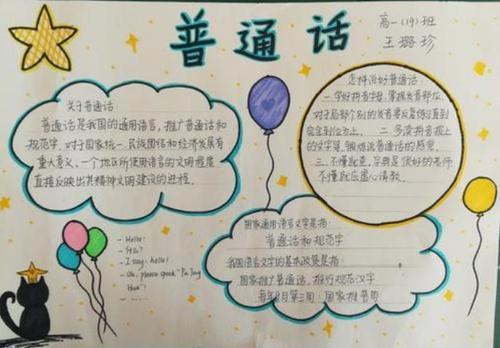 普通话
高一(19)班
王璐珍
关于普通话:
普通话是我国的通用语言,推广普通话和
规范字,对于国家统一、民族团结和经济发展有
重大意义,一个地区所使用语言的文明程度
直接反映出其精神文明建设的进程。
怎样说好普通话:
一.学好拼音字母,掌握发音部位,
对于局部个别的发音要反复练习直到
完全到位为止。二.多读拼音报上
的文字等,锻炼说普通话的感觉。
三.不懂就查,字典是很好的老师
不懂就应虚心请教。
- Hello!
- Siri?
- I say, hello!
- Uh, please speak "Pu Tong
Hua"!
- ......
国家通用语言文字是指:
普通话和规范字
我国语言文字的基本政策是指:
国家推广普通话,推行规范汉字
每年9月第三周:国家推普周